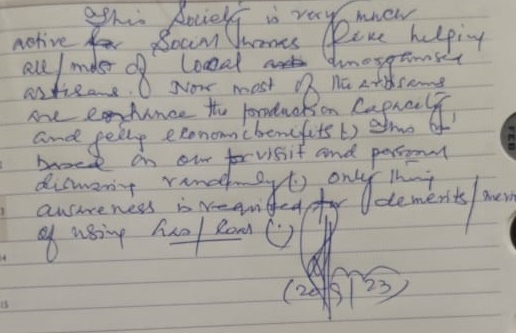 This Society is very much
active for Social works like helping
all/most of local and unorganised
artisans. Now most of the artisans
are enhance the production capacity
and getting economic benefits
based on our visit and personal
randomly (.) only thing
awareness is required for demerits/
of using
(20/9/23)
15